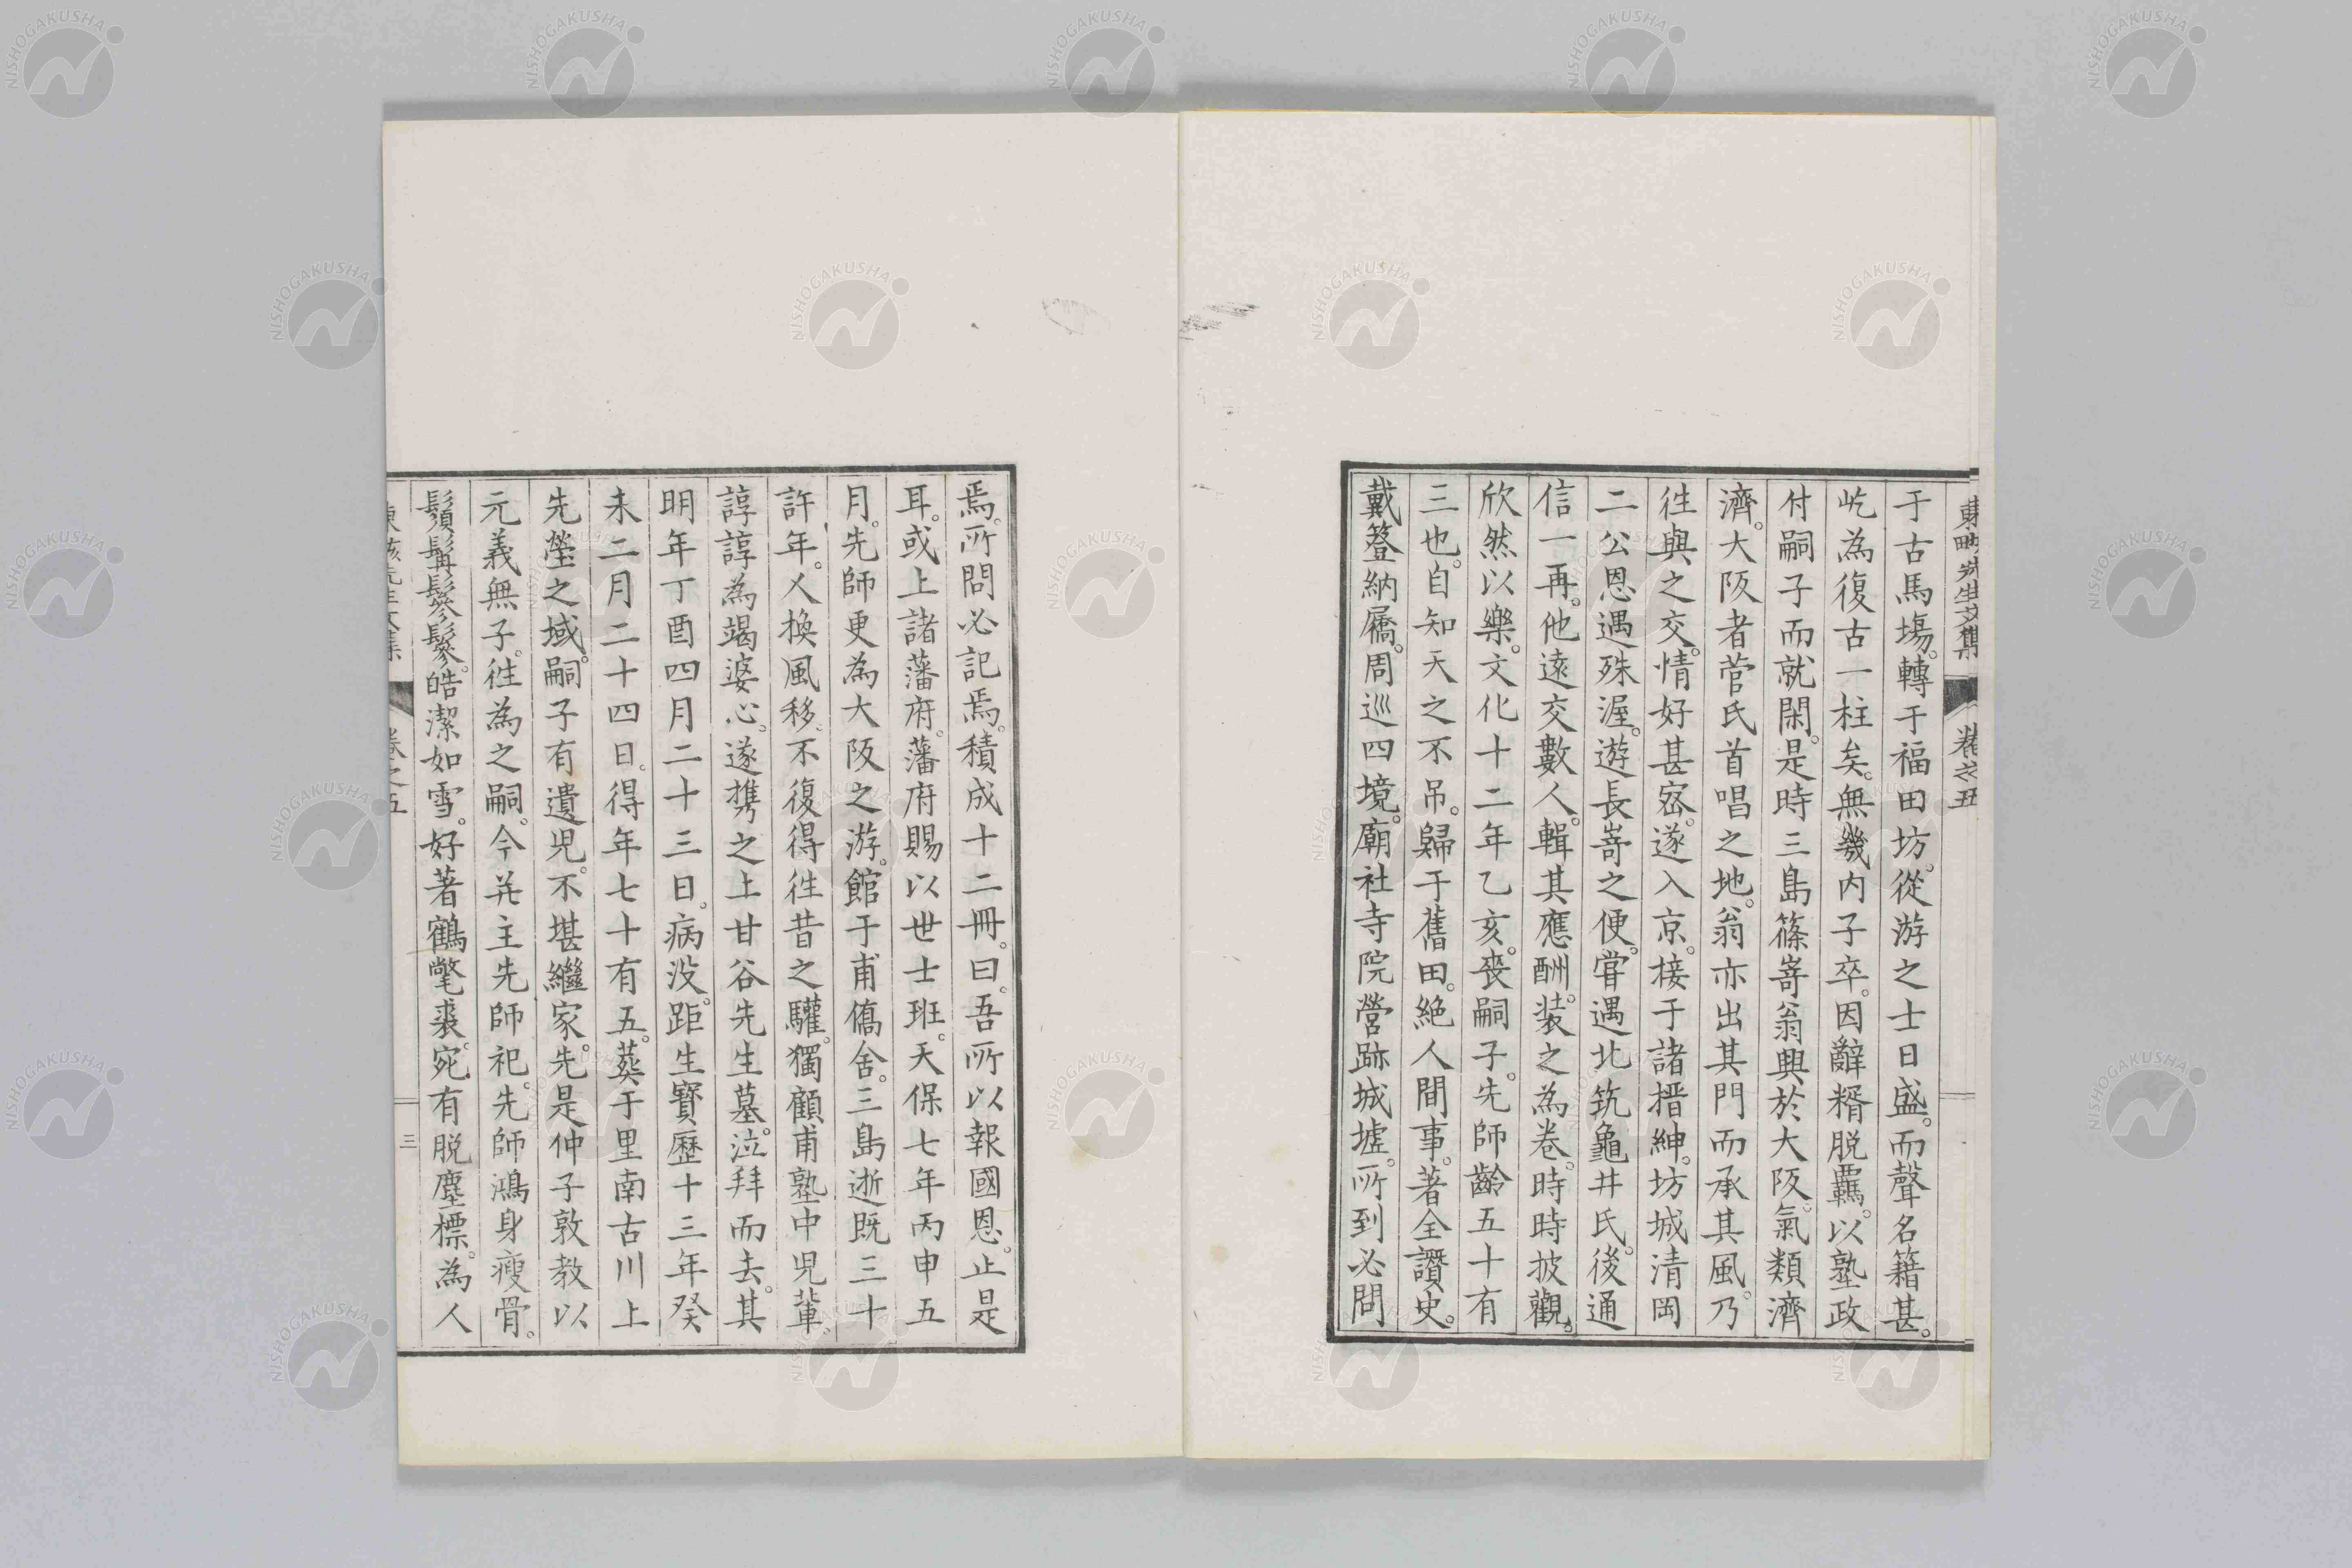 于古馬塲。轉于福田坊。從游之士日盛。而聲名籍甚。
屹為復古一柱矣。無幾内子卒。因辭糈脱羈。以塾政
付嗣子而就閑。是時三島篠嵜翁興於大阪。氣類濟
濟。大阪者菅氏首唱之地。翁亦出其門而承其風。乃
徃與之交。情好甚宻。遂入京。接于諸搢紳。坊城清岡
二公恩遇殊渥。遊長嵜之便。嘗遇北筑龜井氏。後通
信一再。他遠交數人。輯其應酬。装之為卷。時時披觀。
欣然以樂。文化十二年乙亥。喪嗣子。先師齡五十有
三也。自知天之不吊。歸于舊田。絶人間事。著全讚史。
戴簦納屩。周巡四境。廟社寺院營跡城墟。所到必問
焉。所問必記焉。積成十二冊。曰。吾所以報國恩。止是
耳。或上諸藩府。藩府賜以世士班。天保七年丙申五
月。先師更為大阪之游。館于甫僑舍。三島逝既三十
許年。人換風移。不復得徃昔之驩。獨顧甫塾中児輩
諄諄為竭婆心。遂携之上甘谷先生墓。泣拜而去。其
明年丁酉四月二十三日。病没。距生寳歷十三年癸
未二月二十四日。得年七十有五。葬于里南古川上
先塋之域。嗣子有遺児。不堪繼家。先是仲子敦教以
元義無子。徃為之嗣。今并主先師祀。先師鴻身瘦骨。
鬚髯鬖鬖。皓潔如雪。好著鶴氅裘。宛有脱塵標。為人
卷之五
三